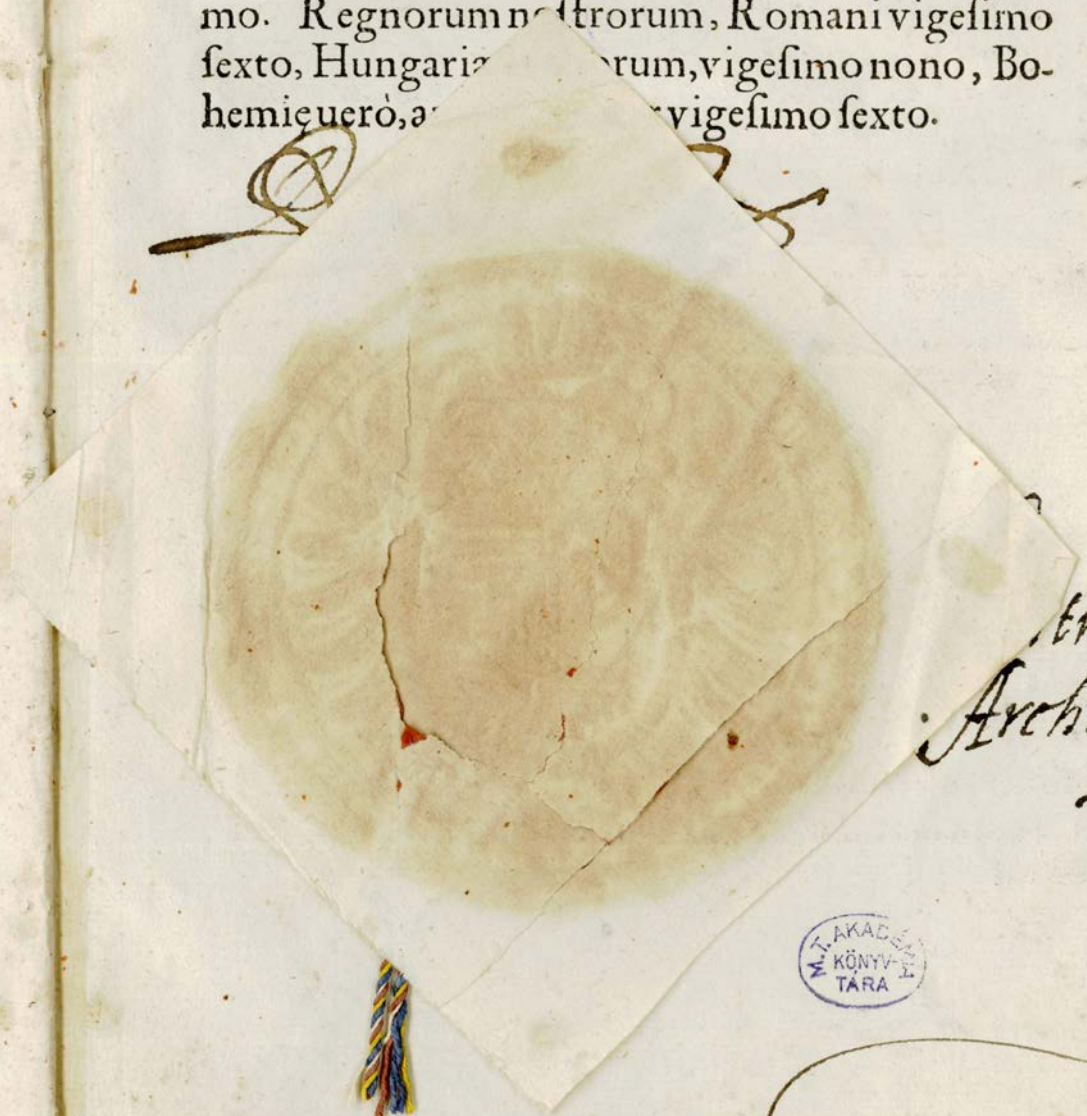 mo. Regnorum noſtrorum, Romani vigeſimo
ſexto, Hungariæ orum, vigeſimo nono, Bo-
hemię uerò, a r vigeſimo ſexto.
Arch
M. T. AKADÉMIA
KÖNYV-
TÁRA